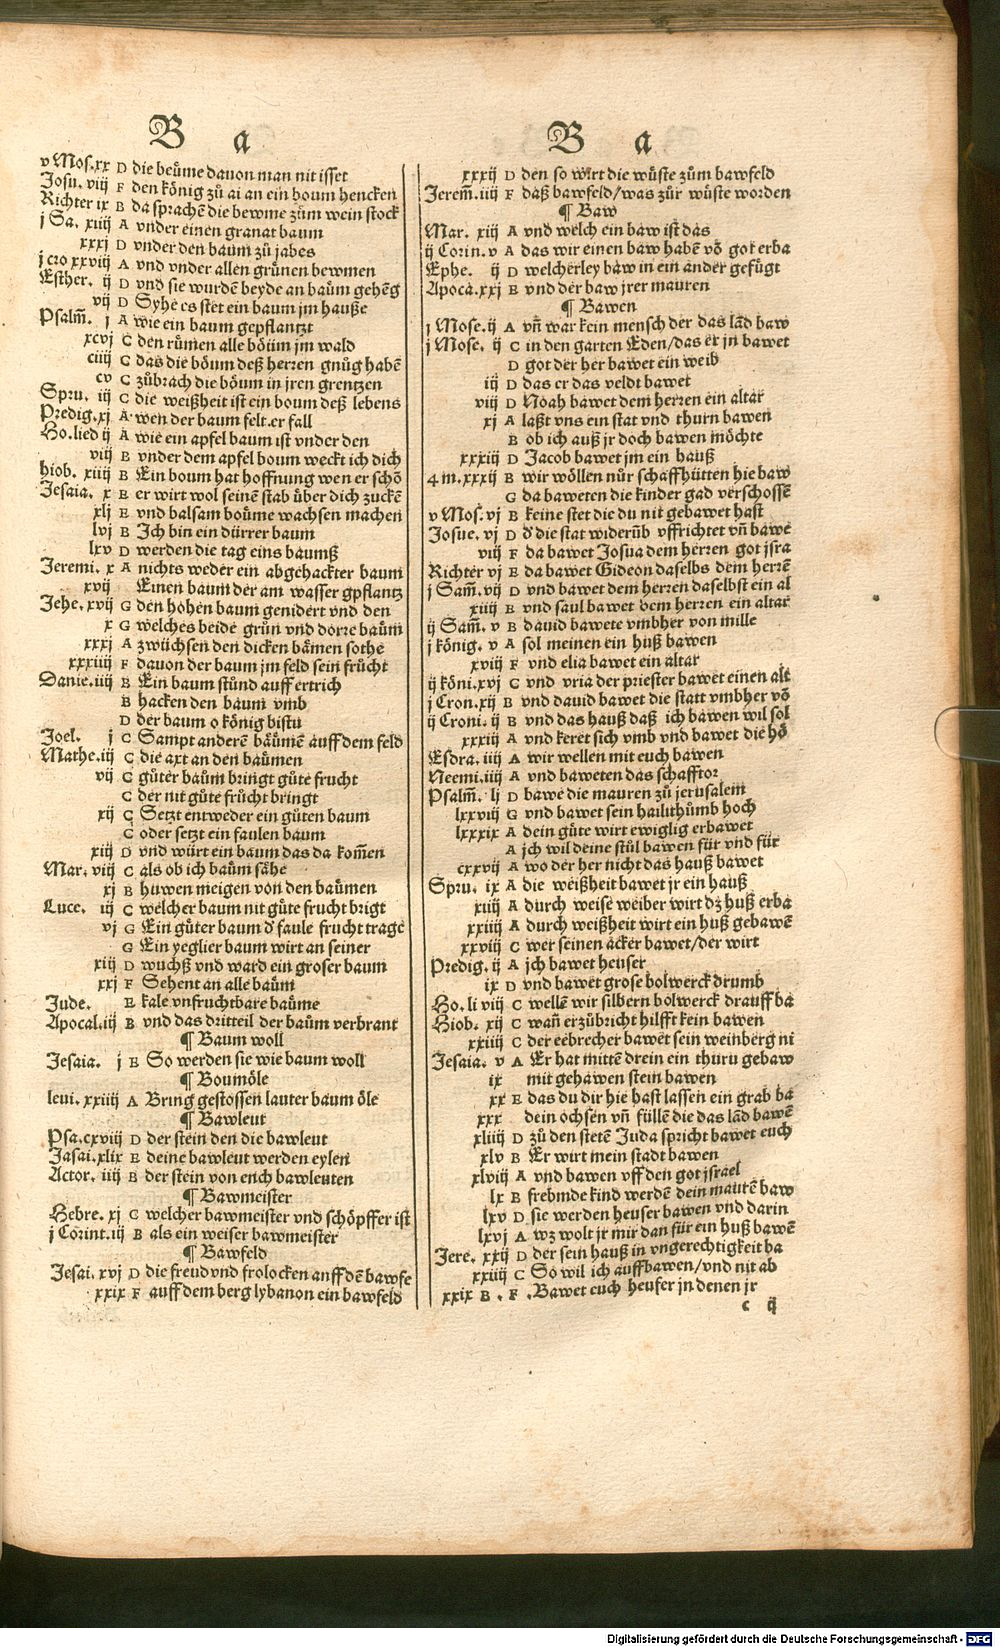 B a
v Mos.xx D die beůme dauon man nit isset
Josu. viij F den kőnig zů ai an ein boum hencken
Richter ix B da sprachē die bewme zům wein stock
j Sa. xiiij A vnder einen granat baum
xxxj D vnder den baum zů jabes
j cro xxviij A vnd vnder allen grůnen bewmen
Esther. ij D vnd sie wurdē beyde an baům gehēg
vij D Syhe es stet ein baum jm hauße
Psalm̄. j A wie ein baum gepflantzt
xcvj C den růmen alle bőum jm wald
ciiij C das die bőum deß herren gnůg habē
cv C zůbrach die bőum in jren grentzen
Spru. iij C die weißheit ist ein boum deß lebens
Predig.xj A wen der baum felt.er fall
Ho.lied ij A wie ein apfel baum ist vnder den
viij B vnder dem apfel boum weckt ich dich
hiob. xiiij B Ein boum hat hoffnung wen er schő
Jesaia. x E er wirt wol seinē stab ůber dich zuckē
xlj E vnd balsam boůme wachsen machen
lvj B Ich bin ein dürrer baum
lxv D werden die tag eins baumß
Jeremi. x A nichts weder ein abgehackter baum
xvij Einen baum der am wasser gpflantz
Jehe. xvij G den hohen baum genidert vnd den
x G welches beide grůn vnd dorre baům
xxxj A zwüchsen den dicken bämen sothe
xxxiiij F dauon der baum jm feld sein frücht
Danie.iiij B Ein baum stůnd auff ertrich
B hacken den baum vmb
D der baum o kőnig bistu
Joel. j C Sampt anderē bäůmē auff dem feld
Mathe.iij C die axt an den baůmen
vij C gůter baům bringt gůte frucht
C der nit gůte frůcht bringt
xij C Setzt entweder ein gůten baum
C oder setzt ein faulen baum
xiij D vnd würt ein baum das da kom̄en
Mar. viij C als ob ich baům sähe
xj B huwen meigen von den baůmen
Luce. iij C welcher baum nit gůte frucht brigt
vj G Ein gůter baum d' faule frucht tragē
G Ein yeglier baum wirt an seiner
xiij D wuchß vnd ward ein groser baum
xxj F Sehent an alle baům
Jude. E kale vnfruchtbare baůme
Apocal.iij B vnd das dritteil der baům verbrant
¶ Baum woll
Jesaia. j E So werden sie wie baum woll
¶ Boumőle
leui. xxiiij A Bring gestossen lauter baum őle
¶ Bawleut
Psa.cxviij D der stein den die bawleut
Jasai.xlix E deine bawleut werden eylen
Actor. iiij B der stein von euch bawleuten
¶ Bawmeister
Hebre. xj C welcher bawmeister vnd schőpffer ist
j Corint.iij B als ein weiser bawmeister
¶ Bawfeld
Jesai. xvj D die freud vnd frolocken auff dē bawfe
xxix F auff dem berg lybanon ein bawfeld
B a
xxxij D den so wirt die wůste zům bawfeld
Jerem̄.iiij F daß bawfeld/was zůr wůste worden
¶ Baw
Mar. xiij A vnd welch ein baw ist das
ij Corin.v A das wir einen baw habē vō got erba
Ephe. ij D welcherley baw in ein ander gefůgt
Apoca.xxj B vnd der baw jrer mauren
¶ Bawen
j Mose.ij A vn̄ war kein mensch der das lād baw
j Mose. ij C in den garten Eden/das er jn bawet
D got der her bawet ein weib
iij D das er das veldt bawet
viij D Noah bawet dem herren ein altar
xj A laßt vns ein stat vnd thurn bawen
B ob ich auß jr doch bawen mőchte
xxxiij D Jacob bawet jm ein hauß
4 m.xxxij B wir wőllen nůr schaffhütten hie baw
G da baweten die kinder gad verschossē
v Mos.vj B keine stet die du nit gebawet hast
Josue. vj D d' die stat widerūb vffrichtet vn̄ bawe
viij F da bawet Josua dem herren got jsra
Richter vj E da bawet Gideon daselbs dem herrē
j Sam̄. vij D vnd bawet dem herren daselbst ein al
xiiij E vnd saul bawet dem herren ein altar
ij Sam̄. v B dauid bawete vmbher von mille
j kőnig. v A sol meinen ein huß bawen
xviij F vnd elia bawet ein altar
ij kőni.xvj C vnd vria der priester bawet einen alt
j Cron.xij B vnd dauid bawet die statt vmbher vō
ij Croni. ij B vnd das hauß daß ich bawen wil sol
xxxiij A vnd keret sich vmb vnd bawet die hő
Esdra. iiij A wir wellen mit euch bawen
Neemi.iiij A vnd baweten das schafftor
Psalm̄. lj D bawe die mauren zů jerusalem
lxxviij G vnd bawet sein hailithůmb hoch
lxxxix A dein gůte wirt ewiglig erbawet
A jch wil deine stůl bawen für vnd für
cxxvij A wo der her nicht das hauß bawet
Spru. ix A die weißheit bawet jr ein hauß
xiiij A durch weise weiber wirt dz huß erba
xxiiij A durch weißheit wirt ein huß gebawē
xxviij C wer seinen äcker bawet/der wirt
Predig. ij A jch bawet heuser
ix D vnd bawet grose bolwerck drumb
Ho. li viij C wellē wir silbern bolwerck drauff ba
Hiob. xij C wan̄ er zůbricht hilfft kein bawen
xxiiij C der eebrecher bawet sein weinberg ni
Jesaia. v A Er hat mittē drein ein thuru gebaw
ix mit gehawen stein bawen
xx E das du dir hie hast lassen ein grab ba
xxx dein ochsen vn̄ füllē die das lād bawē
xliiij D zů den stetē Juda spricht bawet euch
xlv B Er wirt mein stadt bawen
xlviij A vnd bawen vff den got jsrael
lx B frebmde kind werdē dein maurē baw
lxv D sie werden heuser bawen vnd darin
lxvj A wz wolt jr mir dan für ein huß bawē
Jere. xxij D der sein hauß in vngerechtigkeit ba
xxiiij C So wil ich auffbawen/vnd nit ab
xxix B . F . Bawet euch heuser jn denen jr
c ij
Digitalisierung gefördert durch die Deutsche Forschungsgemeinschaft - DFG